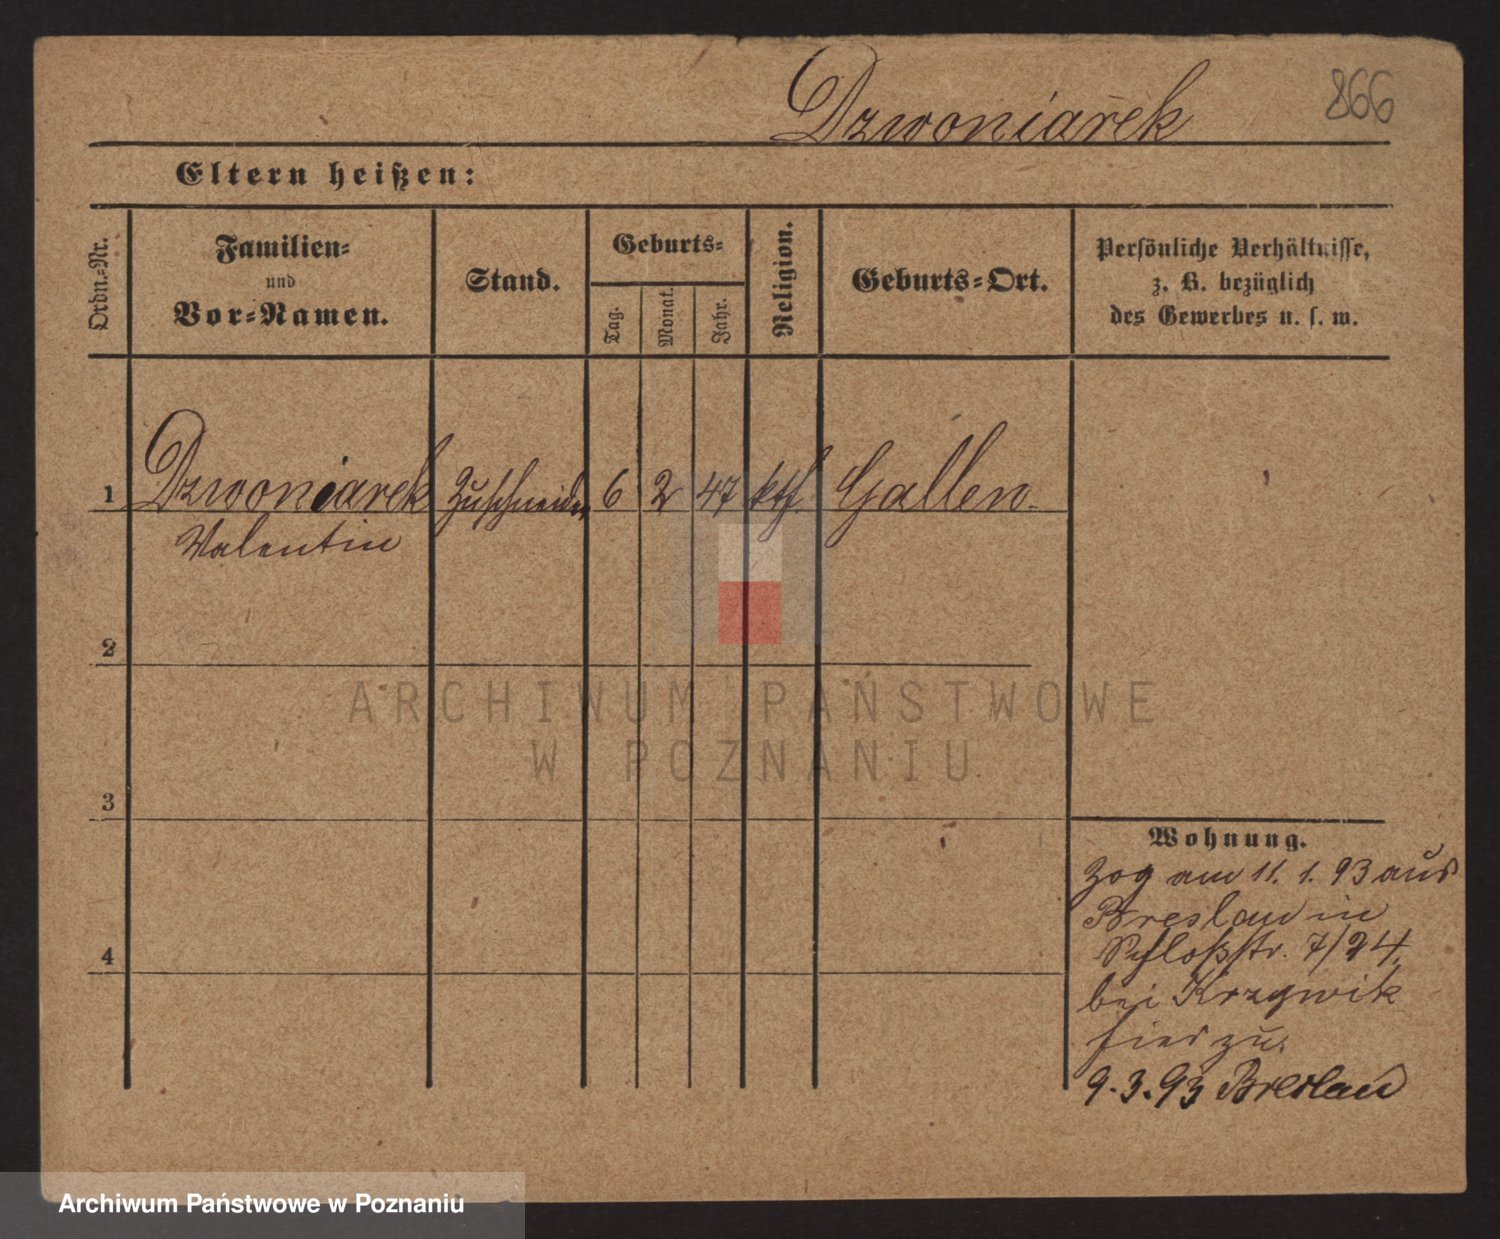 Dzwoniarek 866
Eltern heißen:
Ordn.-Nr.
Familien-
und
Vor-Namen.
Stand.
Geburts-
Tag.
Monat.
Jahr.
Religion.
Geburts-Ort.
Persönliche Verhältnisse,
z. B. bezüglich
des Gewerbes u. s. w.
1 Dzwoniarek Zuschneider 6 2 47 kth. Gallen.
Valentin
2
3
4
Wohnung.
Zog am 11. 1. 93 aus
Breslau in
Schloßstr. 7/24.
bei Krzywik
hier zu.
9.3.93 Breslau
ARCHIWUM PAŃSTWOWE
W POZNANIU
Archiwum Państwowe w Poznaniu